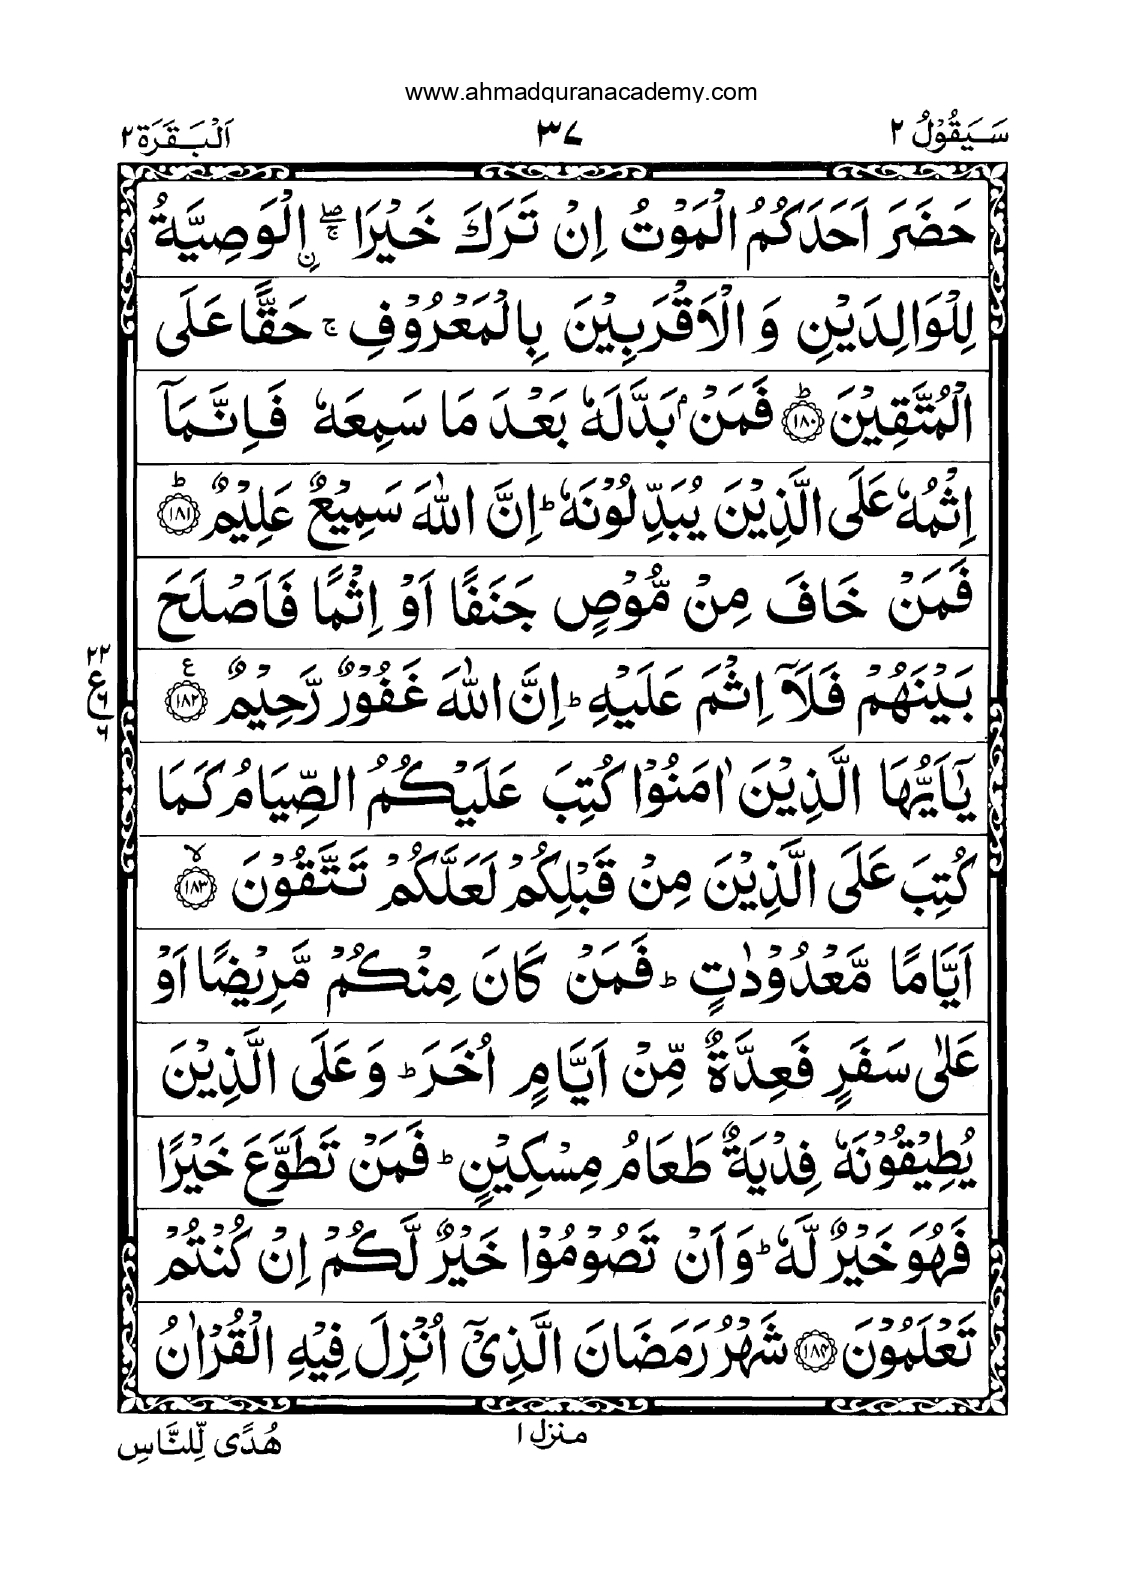 www.ahmadquranacademy.com
سَيَقُوْلُ ٢ ٣٧ اَلْبَقَرَة ٢
حَضَرَ اَحَدَكُمُ الْمَوْتُ اِنْ تَرَكَ خَيْرَا ۖۚ اۨلْوَصِيَّةُ
لِلْوَالِدَيْنِ وَ الْاَقْرَبِيْنَ بِالْمَعْرُوْفِ ۚ حَقًّا عَلَى
الْمُتَّقِيْنَ ؕ‏﴿١٨٠﴾ فَمَنْۢ بَدَّلَهٗ بَعْدَ مَا سَمِعَهٗ فَاِنَّمَاۤ
اِثْمُهٗ عَلَى الَّذِيْنَ يُبَدِّلُوْنَهٗ ؕ اِنَّ اللّٰهَ سَمِيْعٌ عَلِيْمٌ ؕ‏﴿١٨١﴾
فَمَنْ خَافَ مِنْ مُّوْصٍ جَنَفًا اَوْ اِثْمًا فَاَصْلَحَ
بَيْنَهُمْ فَلَاۤ اِثْمَ عَلَيْهِ ؕ اِنَّ اللّٰهَ غَفُوْرٌ رَّحِيْمٌ ع ﴿١٨٢﴾
٢٢
ع ٦
٦
يٰٓاَيُّهَا الَّذِيْنَ اٰمَنُوْا كُتِبَ عَلَيْكُمُ الصِّيَامُ كَمَا
كُتِبَ عَلَى الَّذِيْنَ مِنْ قَبْلِكُمْ لَعَلَّكُمْ تَتَّقُوْنَ ۙ ﴿١٨٣﴾
اَيَّامًا مَّعْدُوْدٰتٍ ؕ فَمَنْ كَانَ مِنْكُمْ مَّرِيْضًا اَوْ
عَلٰى سَفَرٍ فَعِدَّةٌ مِّنْ اَيَّامٍ اُخَرَ ؕ وَعَلَى الَّذِيْنَ
يُطِيْقُوْنَهٗ فِدْيَةٌ طَعَامُ مِسْكِيْنٍ ؕ فَمَنْ تَطَوَّعَ خَيْرًا
فَهُوَ خَيْرٌ لَّهٗ ؕ وَاَنْ تَصُوْمُوْا خَيْرٌ لَّكُمْ اِنْ كُنْتُمْ
تَعْلَمُوْنَ ﴿١٨٤﴾ شَهْرُ رَمَضَانَ الَّذِىْۤ اُنْزِلَ فِيْهِ الْقُرْاٰنُ
منزل ١
هُدًى لِّلنَّاسِ